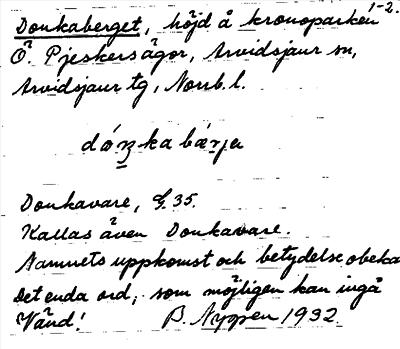 Donkaberget, höjd å kronoparken 1-2.
Ö. Pjeskersågor, Arvidsjaur sn,
Arvidsjaur tg, Norrb. l.
Donkavare, G. 35.
Kallas även Donkavare.
Namnets uppkomst och betydelse obeka
Det enda ord, som möjligen kan ingå
Vänd! B. Nyppen 1932